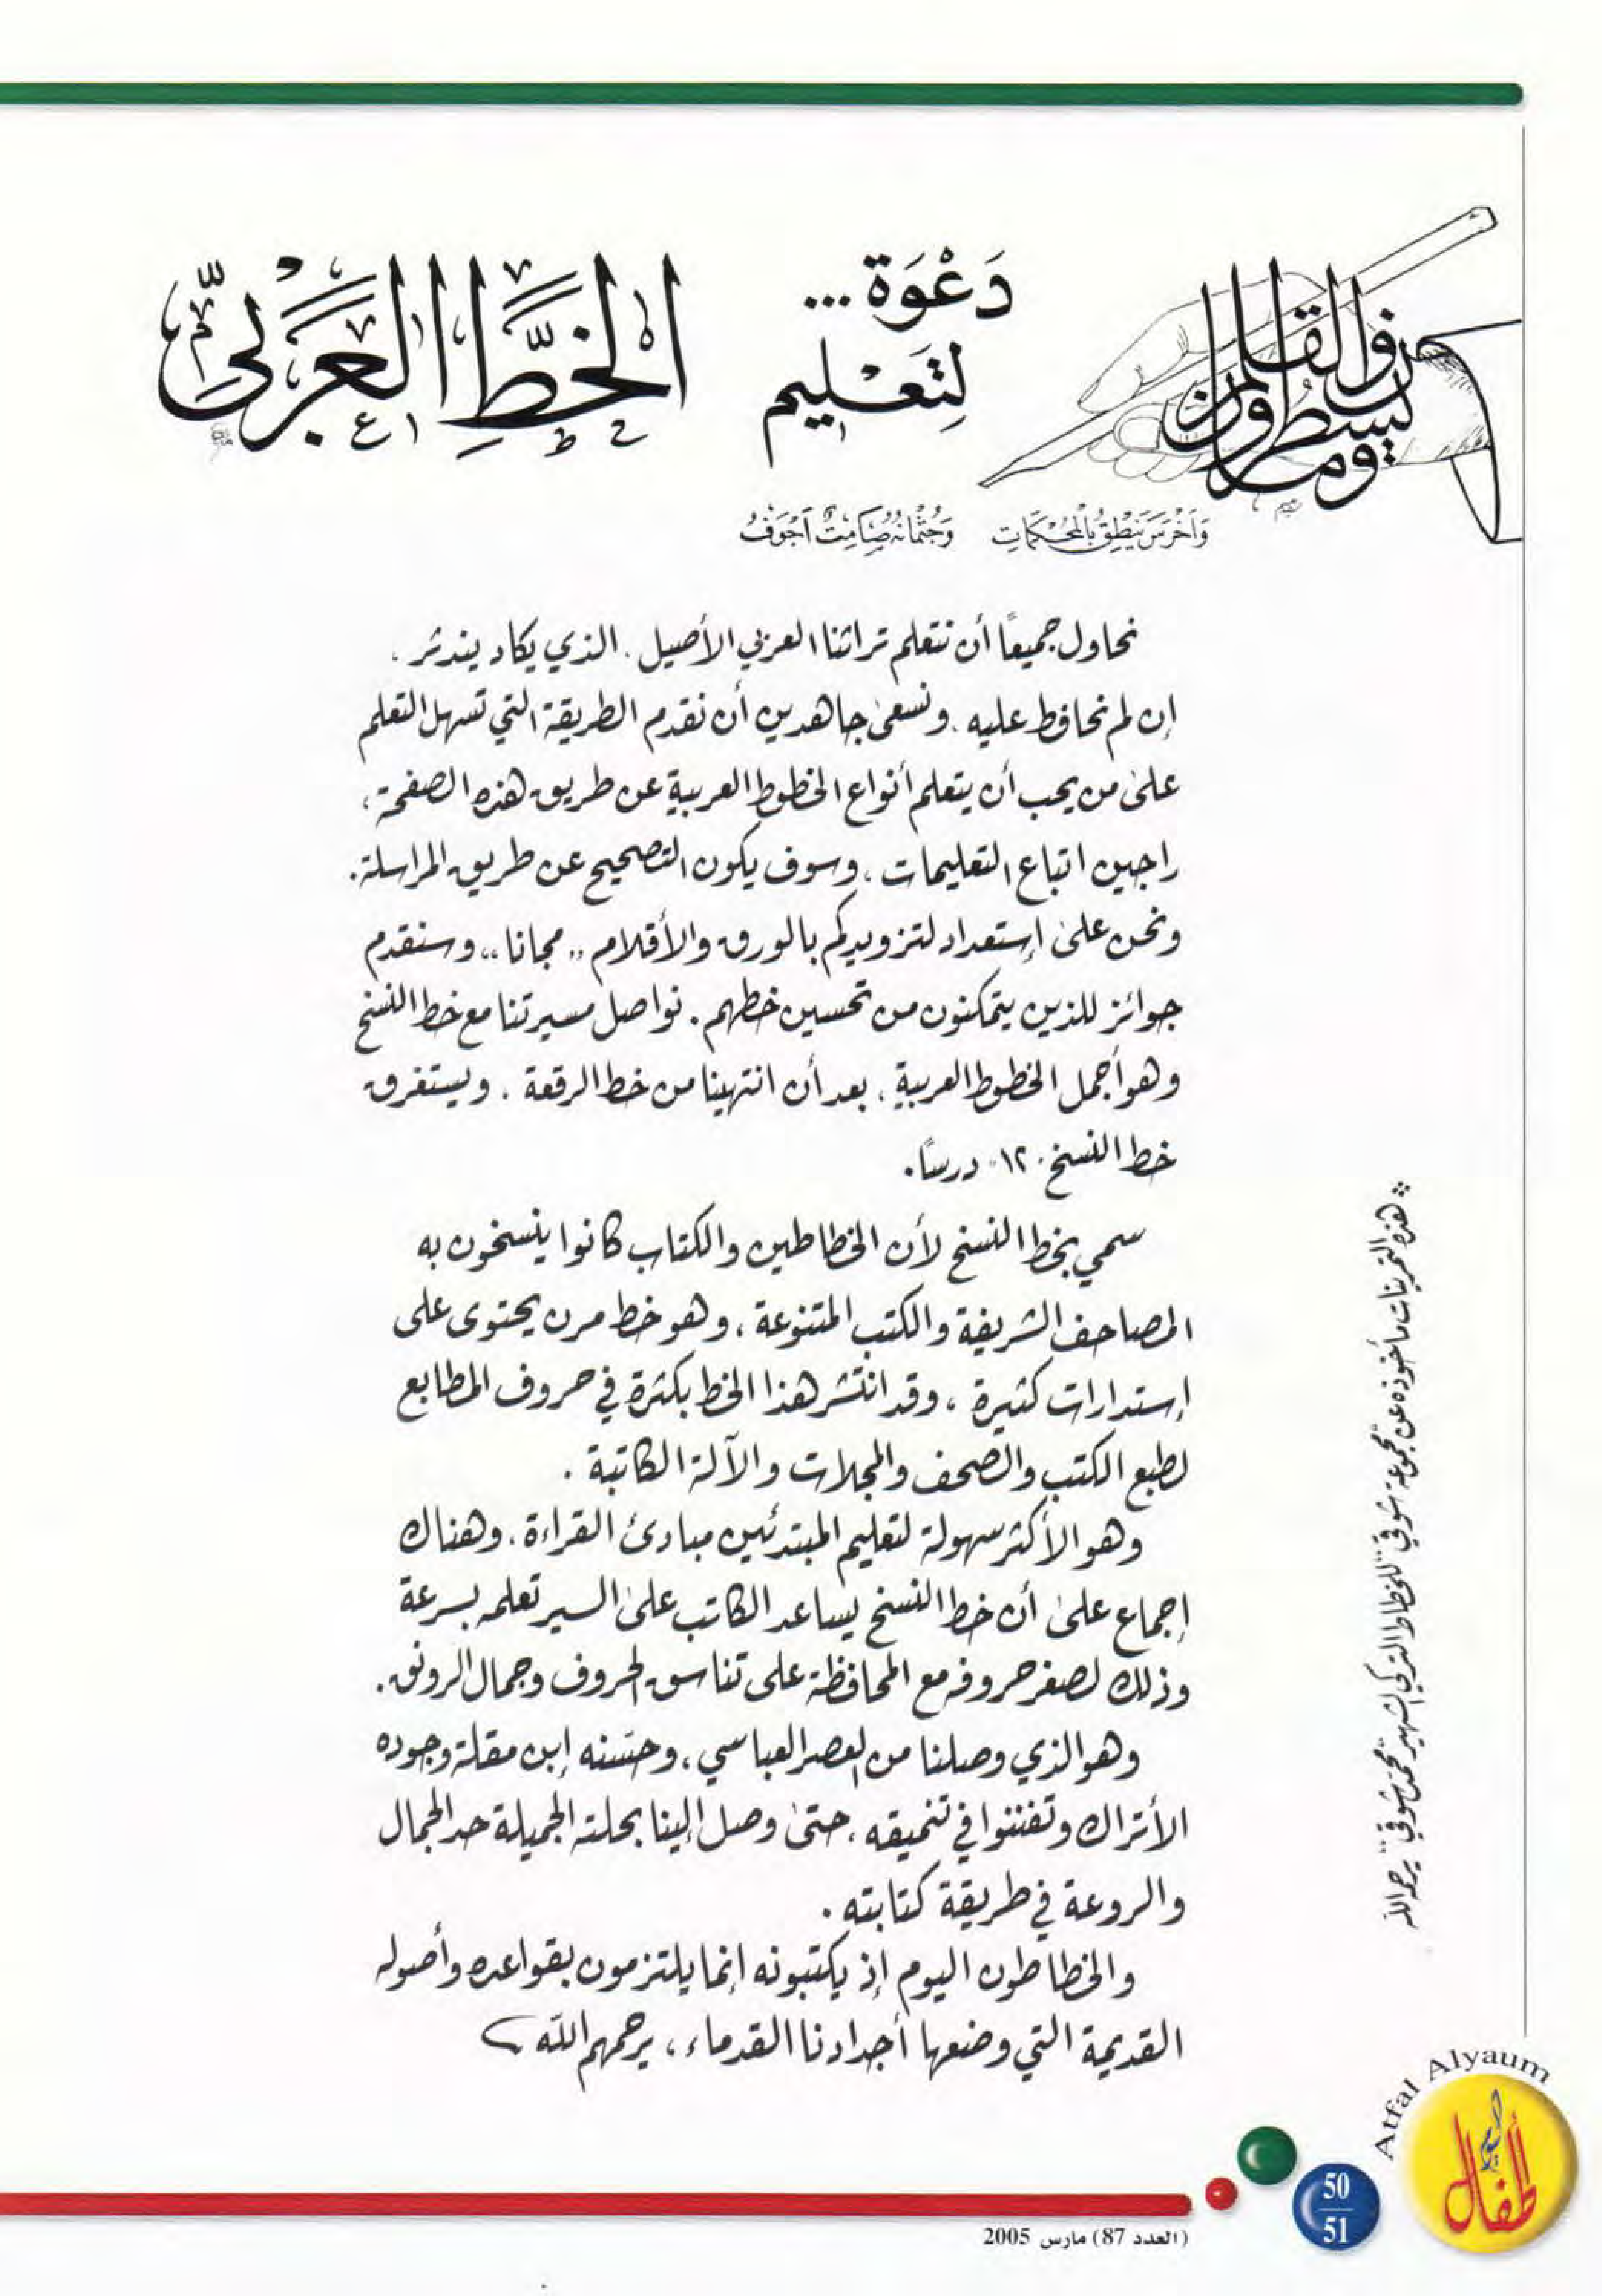 ن والقلم
وما يسطرون
دَعْوَة...
لِتَعْليم
الخَطِّ العَرَبيّ
وَأَخْرَسَ يَنْطِقُ بِالْمُحْكَمَاتِ وَجُثْمَانُهُ صَامِتٌ أَجْوَفُ
نحاول جميعاً أن نتعلم تراثنا العربي الأصيل. الذي يكاد يندثر،
إن لم نحافظ عليه. ونسعى جاهدين أن نقدم الطريقة التي تسهل التعلم
على من يحب أن يتعلم أنواع الخطوط العربية عن طريق هذه الصفحة،
راجين اتباع التعليمات، وسوف يكون التصحيح عن طريق المراسلة.
ونحن على إستعداد لتزويدكم بالورق والأقلام "مجانا"، وسنقدم
جوائز للذين يتمكنون من تحسين خطهم. نواصل مسيرتنا مع خط النسخ
وهو أجمل الخطوط العربية، بعد أن انتهينا من خط الرقعة، ويستغرق
خط النسخ ١٢٠ درساً.
سمي بخط النسخ لأن الخطاطين والكتاب كانوا ينسخون به
المصاحف الشريفة والكتب المتنوعة، وهو خط مرن يحتوى على
إستدارات كثيرة، وقد انتشر هذا الخط بكثرة في حروف المطابع
لطبع الكتب والصحف والمجلات والآلة الكاتبة.
وهو الأكثر سهولة لتعليم المبتدئين مبادئ القراءة، وهناك
إجماع على أن خط النسخ يساعد الكاتب على السير تعلمه بسرعة
وذلك لصغر حروفه مع المحافظة على تناسق الحروف وجمال الرونق.
وهو الذي وصلنا من العصر العباسي، وحسّنه إبن مقلة وجوده
الأتراك وتفننوا في تنميقه، حتى وصل إلينا بحلته الجميلة حد الجمال
والروعة في طريقة كتابته.
والخطاطون اليوم إذ يكتبونه إنما يلتزمون بقواعده وأصوله
القديمة التي وضعها أجدادنا القدماء، يرحمهم الله
* هذه التمرينات مأخوذة عن "مجموعة شوقي" للخطاط التركي الشهير "محمد شوقي" يرحمه الله
Atfal Alyaum
أطفال اليوم
50
51
(العدد 87) مارس 2005